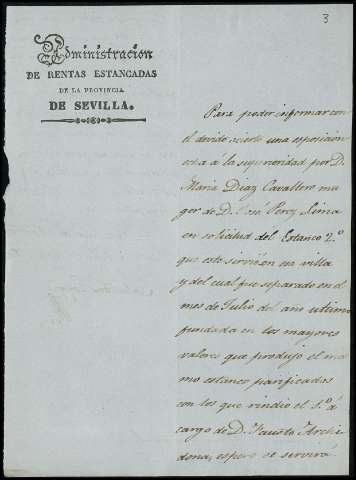 3
Administracion
DE RENTAS ESTANCADAS
DE LA PROVINCIA
DE SEVILLA.
Para poder informar con
el devido acierto una esposicion
echa á la superioridad por D.ª
Maria Diaz Cavallero mu
ger de D. José Perez Lima
en solicitud del Estanco 2.º
que este servia en esa villa
y del cual fue separado en el
mes de Julio del año ultimo
fundada en los mayores
valores que produjo el mis
mo estanco parificados
con los que rindio el 1.º á
cargo de D. Fausto Archi
dona, espero se servirá